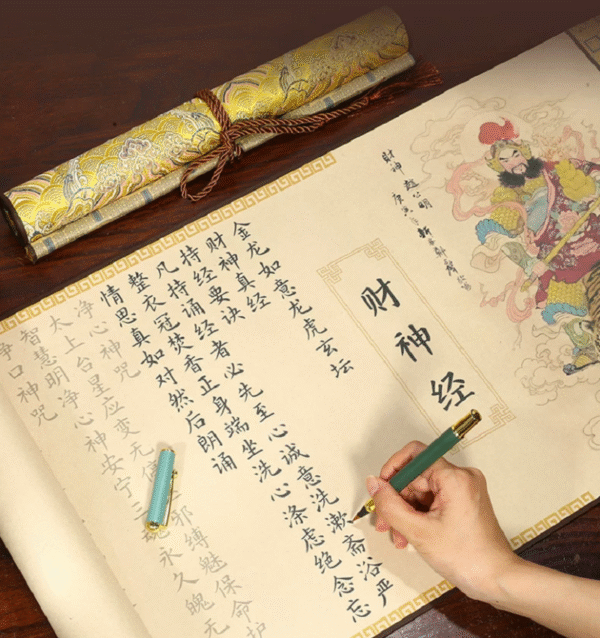 财神 赵公明
财神经
金龙如意龙虎玄坛
财神真经
持经要诀
凡持诵经者必先至心诚意洗漱斋浴严
整衣冠焚香正身端坐洗心涤虑绝念忘
情思真如对然后朗诵
净心神咒
太上台星应变无停邪缚魅保命护
智慧明净心神安宁三永久魄无
净口神咒